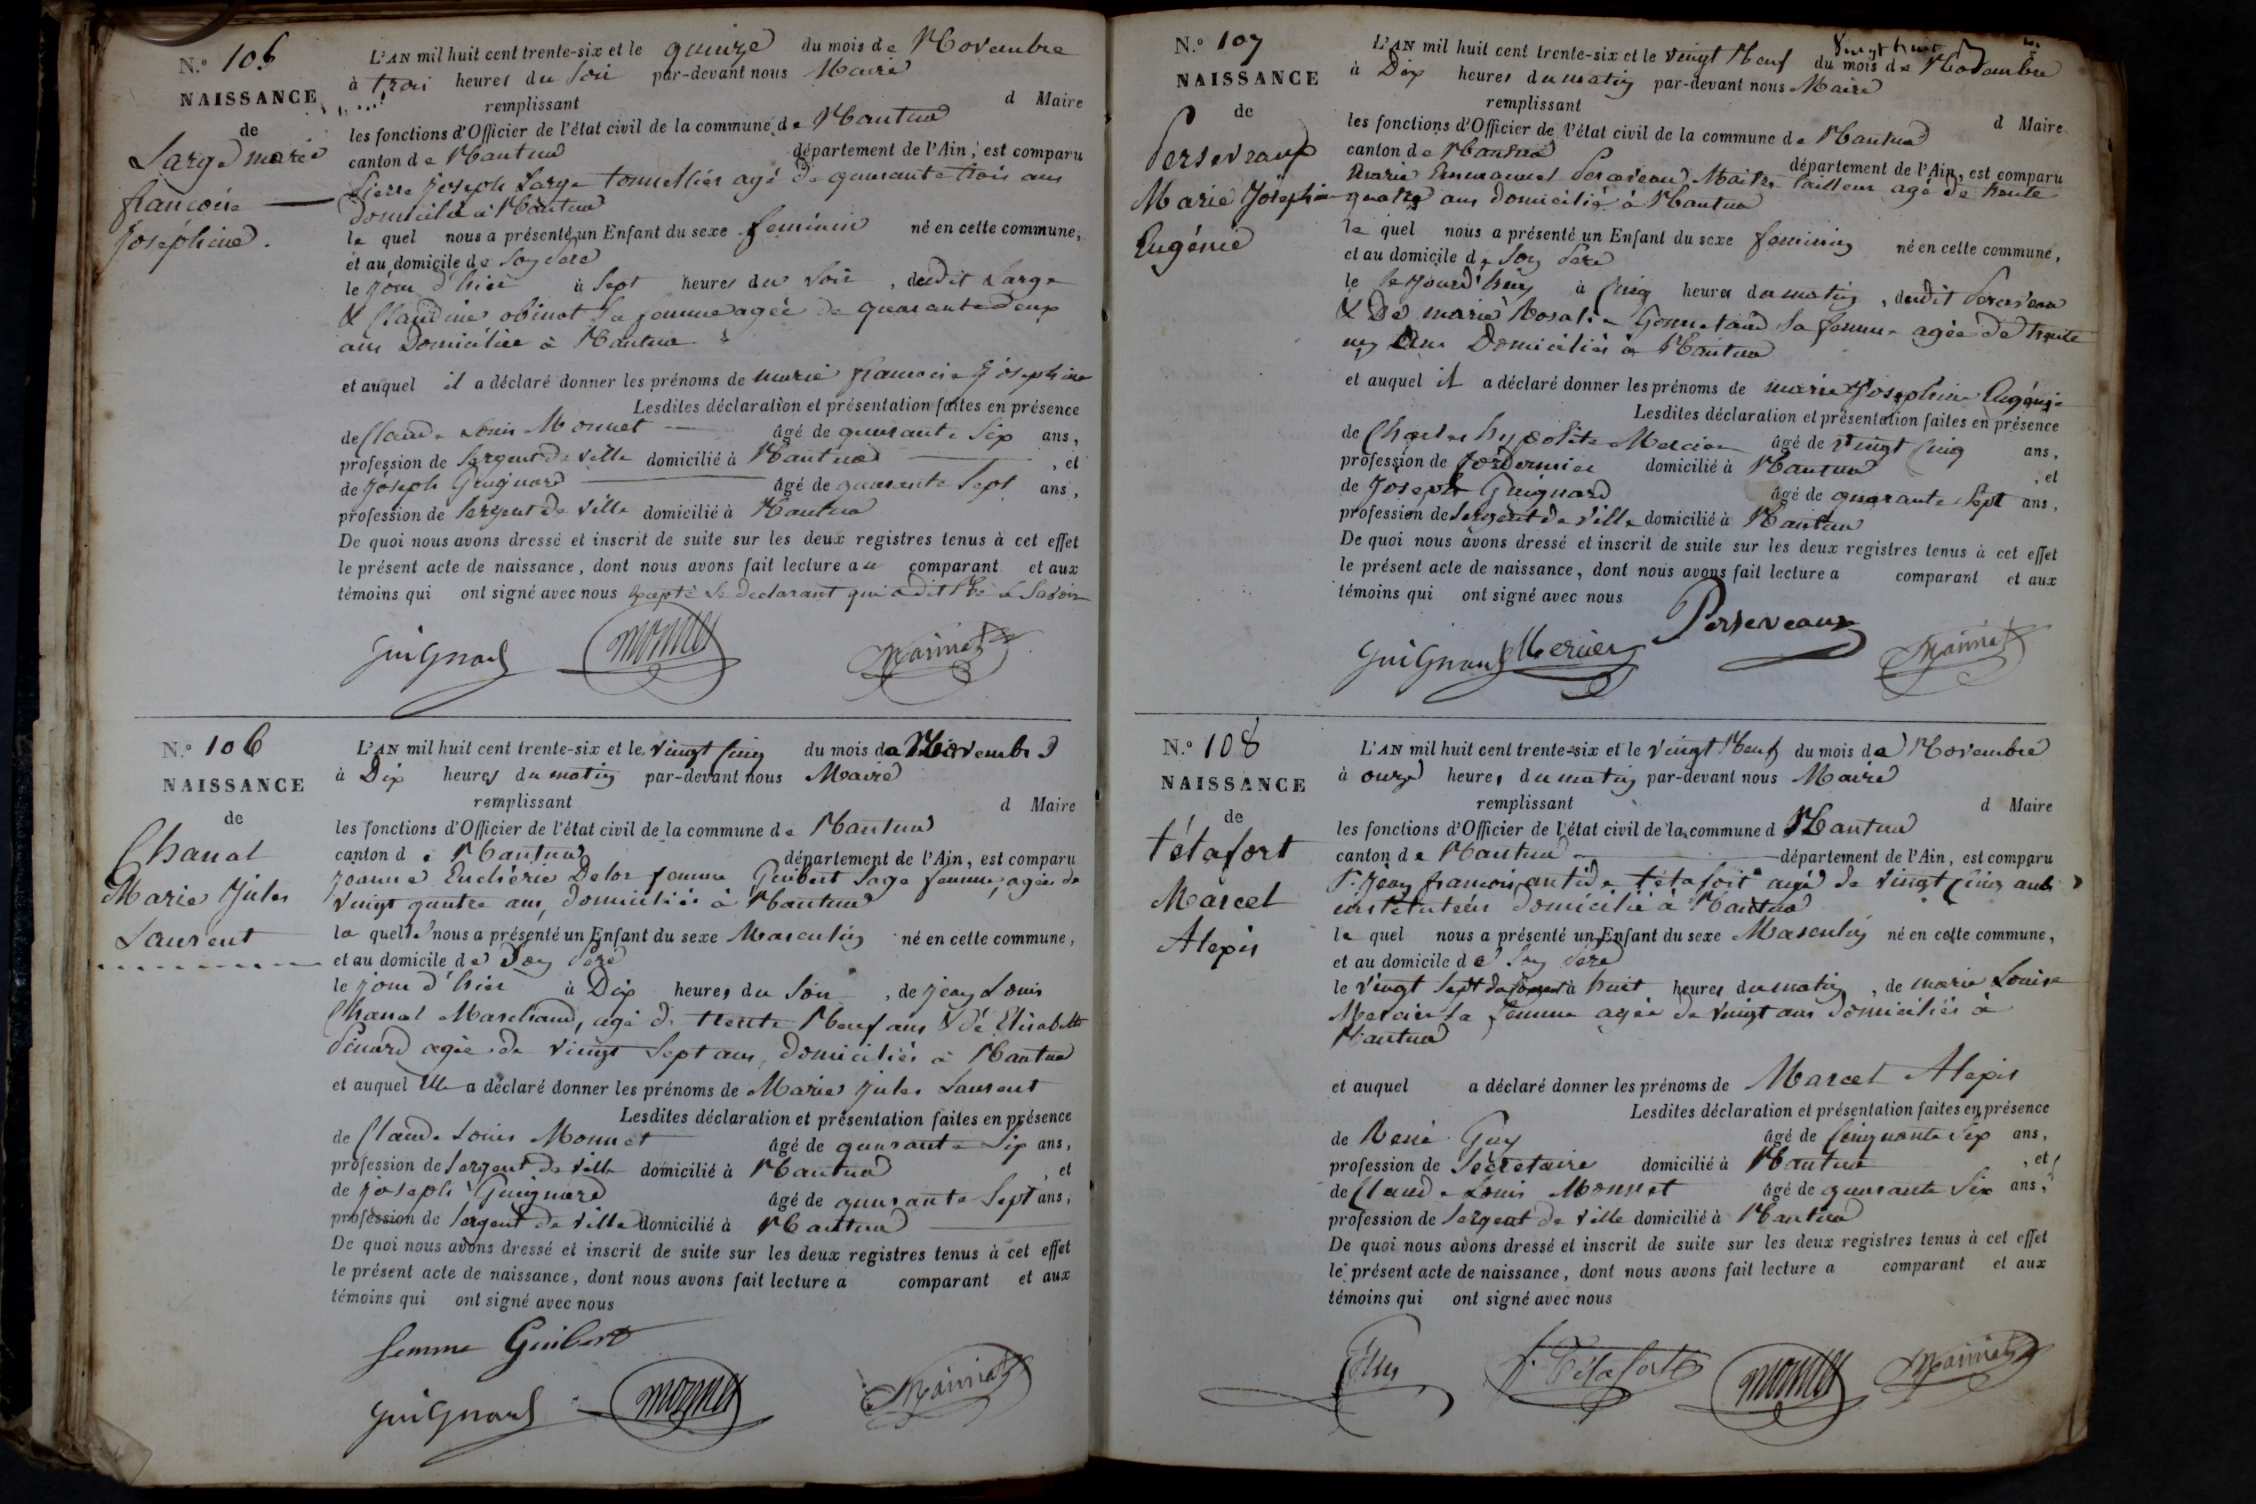 N.º 105
NAISSANCE
de
Large marie
francoise
Josephine.
L'AN mil huit cent trente-six et le quinze du mois de Novembre
à trois heures du soir par-devant nous Maire
remplissant d Maire
les fonctions d'Officier de l'état civil de la commune de Nantua
canton de Nantua département de l'Ain, est comparu
Pierre Joseph Large tonnellier agé de quarante trois ans
domicilié à Nantua
le quel nous a présenté un Enfant du sexe feminin né en cette commune,
et au domicile de son Pere
le jour d'hier à Sept heures du Soir, dudit Large
& Claudine obinot Sa femme agée de quarante deux
ans Domiciliée à Nantua
et auquel il a déclaré donner les prénoms de marie francoise Josephine
Lesdites déclaration et présentation faites en présence
de Claude Louis Monnet âgé de quarante Six ans,
profession de Sergent de ville domicilié à Nantua, et
de Joseph Guignard âgé de quarante Sept ans,
profession de Sergent de ville domicilié à Nantua
De quoi nous avons dressé et inscrit de suite sur les deux registres tenus à cet effet
le présent acte de naissance, dont nous avons fait lecture au comparant et aux
témoins qui ont signé avec nous excepté le declarant qui a dit ne le Savoir
Guignard monnet
N.º 106
NAISSANCE
de
Chanal
Marie Jules
Laurent
L'AN mil huit cent trente-six et le vingt cinq du mois de Novembre
à Dix heures du matin par-devant nous Maire
remplissant d Maire
les fonctions d'Officier de l'état civil de la commune de Nantua
canton de Nantua département de l'Ain, est comparu
Jeanne Delor femme Guibert Sage femme, agée de
vingt quatre ans, domiciliée à Nantua
la quelle nous a présenté un Enfant du sexe Masculin né en cette commune,
et au domicile de Son Pere
le jour d'hier à Dix heures du Soir, de Jean Louis
Chanal Marchand, agé de trente Neuf ans & de Elisabeth
agée de vingt Sept ans, domiciliés à Nantua
et auquel Elle a déclaré donner les prénoms de Marie Jules Laurent
Lesdites déclaration et présentation faites en présence
de Claude Louis Monnet âgé de quarante Six ans,
profession de Sergent de ville domicilié à Nantua, et
de Joseph Guignard âgé de quarante Sept ans,
profession de Sergent de ville domicilié à Nantua
De quoi nous avons dressé et inscrit de suite sur les deux registres tenus à cet effet
le présent acte de naissance, dont nous avons fait lecture a comparant et aux
témoins qui ont signé avec nous
femme Guibert
Guignard monnet
N.º 107
NAISSANCE
de
Perseveaux
Marie Josephine
Eugénie
Vingt huit
L'AN mil huit cent trente-six et le vingt Neuf du mois de Novembre
à Dix heures du matin par-devant nous Maire
remplissant d Maire
les fonctions d'Officier de l'état civil de la commune de Nantua
canton de Nantua département de l'Ain, est comparu
Marie Emmanuel Perseveau Maitre tailleur agé de trente
quatre ans domicilié à Nantua
le quel nous a présenté un Enfant du sexe feminin né en cette commune,
et au domicile de Son Pere
le à cinq heures du matin, dudit Perseveau
& De marie Rosalie Sa femme agée de trente
un Ans Domiciliés à Nantua
et auquel il a déclaré donner les prénoms de marie Josephine Eugénie
Lesdites déclaration et présentation faites en présence
de Charles hypolite Mercier âgé de vingt cinq ans,
profession de domicilié à Nantua, et
de Joseph Guignard âgé de quarante Sept ans,
profession de Sergent de ville domicilié à Nantua
De quoi nous avons dressé et inscrit de suite sur les deux registres tenus à cet effet
le présent acte de naissance, dont nous avons fait lecture a comparant et aux
témoins qui ont signé avec nous
Perseveaux
Guignard Mercier
N.º 108
NAISSANCE
de
tétafort
Marcel
Alexis
L'AN mil huit cent trente-six et le vingt Neuf du mois de Novembre
à onze heures du matin par-devant nous Maire
remplissant d Maire
les fonctions d'Officier de l'état civil de la commune d Nantua
canton de Nantua département de l'Ain, est comparu
Sr. Jean francois antide tétafort agé de vingt cinq ans
instituteur domicilié à Nantua
le quel nous a présenté un Enfant du sexe Masculin né en cette commune,
et au domicile de Son Pere
le vingt Sept à huit heures du matin, de marie Louise
Mercier Sa femme agée de vingt ans domiciliés à
Nantua
et auquel a déclaré donner les prénoms de Marcel Alexis
Lesdites déclaration et présentation faites en présence
de René Guy âgé de cinquante Six ans,
profession de Secrétaire domicilié à Nantua, et
de Claude Louis Monnet âgé de quarante Six ans,
profession de Sergent de ville domicilié à Nantua
De quoi nous avons dressé et inscrit de suite sur les deux registres tenus à cet effet
le présent acte de naissance, dont nous avons fait lecture a comparant et aux
témoins qui ont signé avec nous
Guy f. Tétafort monnet